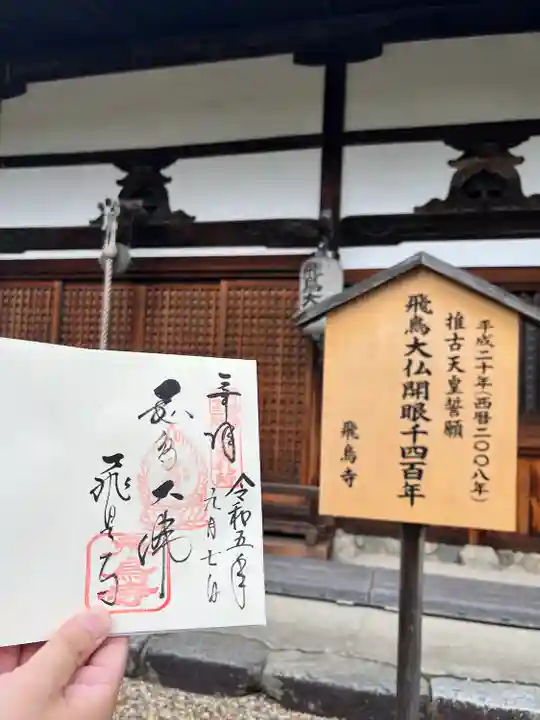 平成二十年(西暦二〇〇八年)
推古天皇誓願
飛鳥大仏開眼千四百年
飛鳥寺
飛鳥大
奉拝
令和五年
月七日
大佛
飛鳥寺